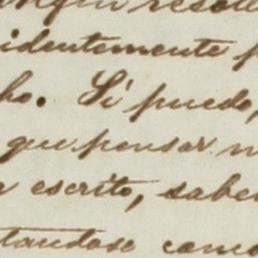 resol
identemente p
ho. Si puedo,
que pensar n
e escrito, sabe
tandose como